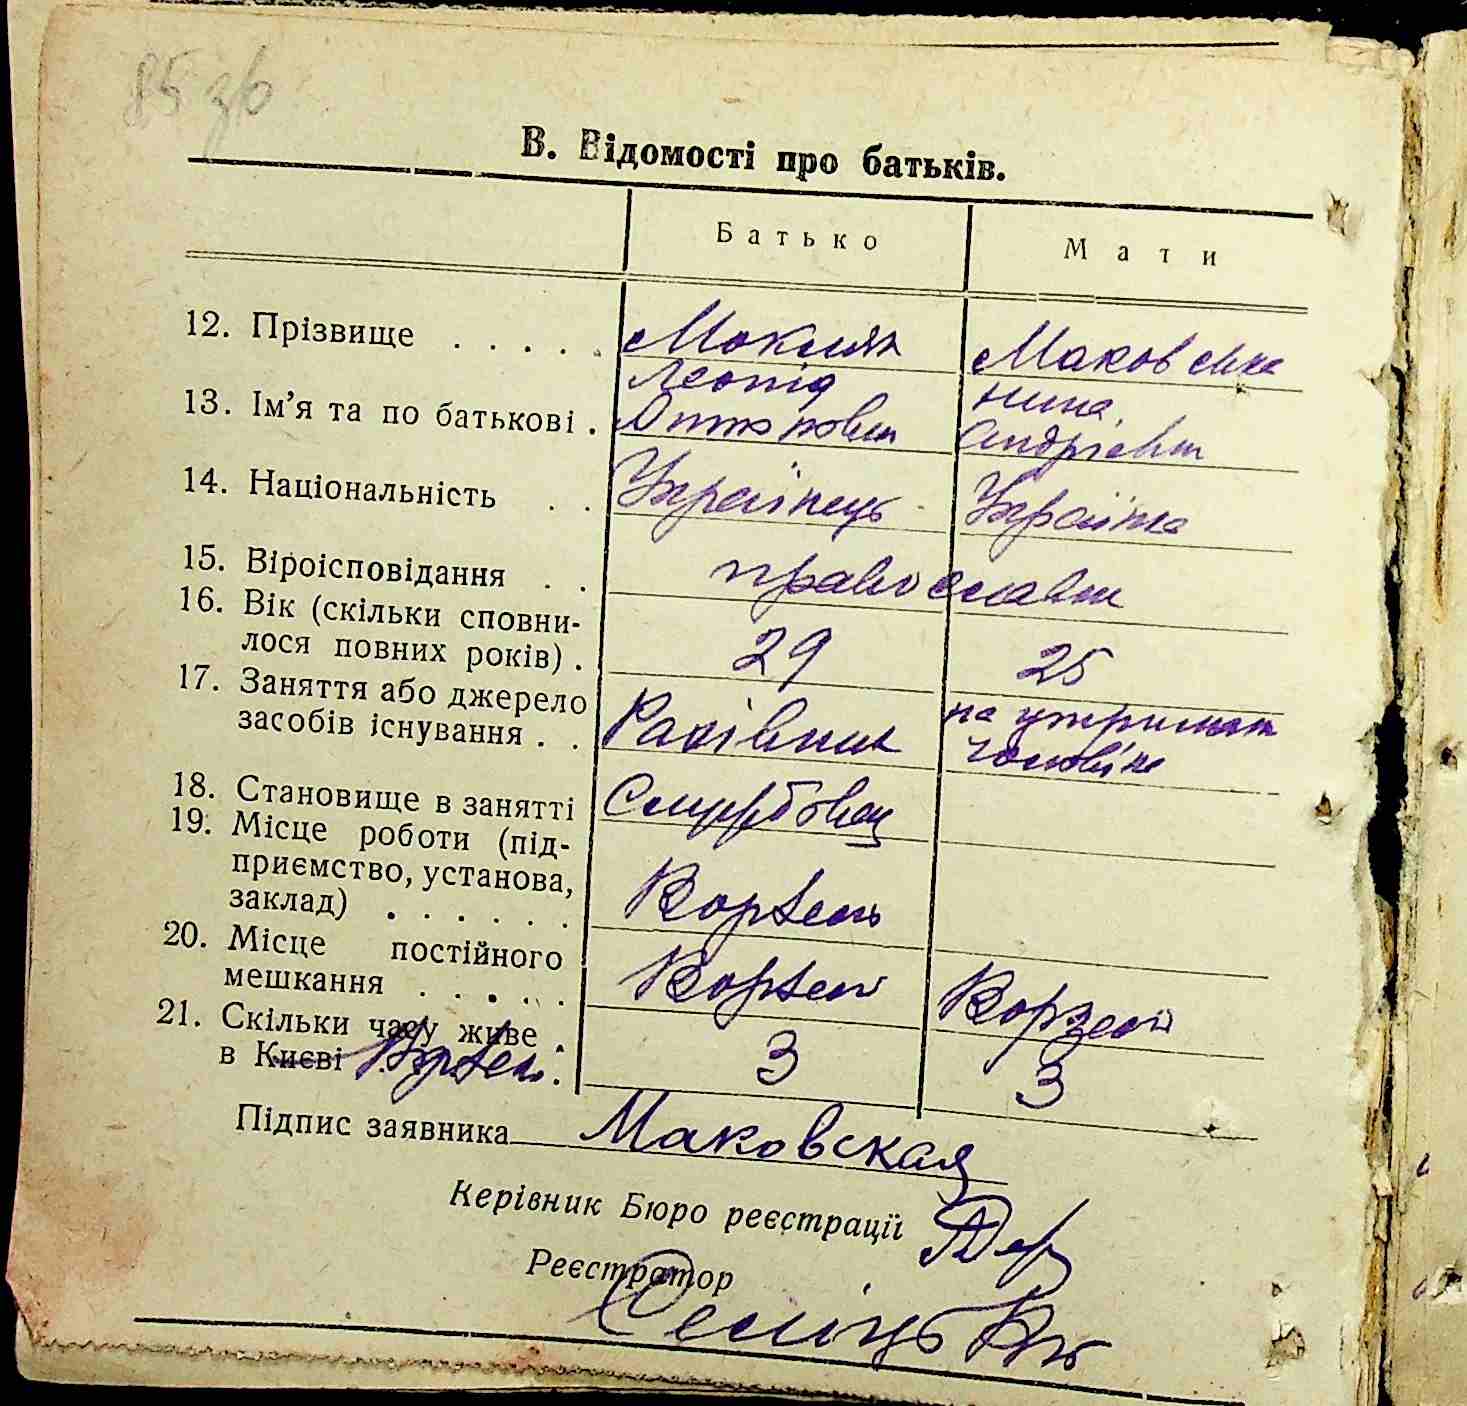 85 зв
В. Відомості про батьків.
Батько Мати
12. Прізвище . . . . . Макси Маковська
Леонід Нина
13. Ім’я та по батькові . Андрієвн
14. Національність . . Українець Українка
15. Віроісповідання . . православн
16. Вік (скільки сповни-
лося повних років) . 29 25
17. Заняття або джерело на утриман
засобів існування . . чоловіка
18. Становище в занятті
19. Місце роботи (під-
приємство, установа,
заклад) . . . . . . Ворзель
20. Місце постійного
мешкання . . . . . Ворзель Ворзель
21. Скільки часу живе .
в Києві Ворзель . 3 3
Підпис заявника Маковская
Керівник Бюро реєстрації
Реєстратор